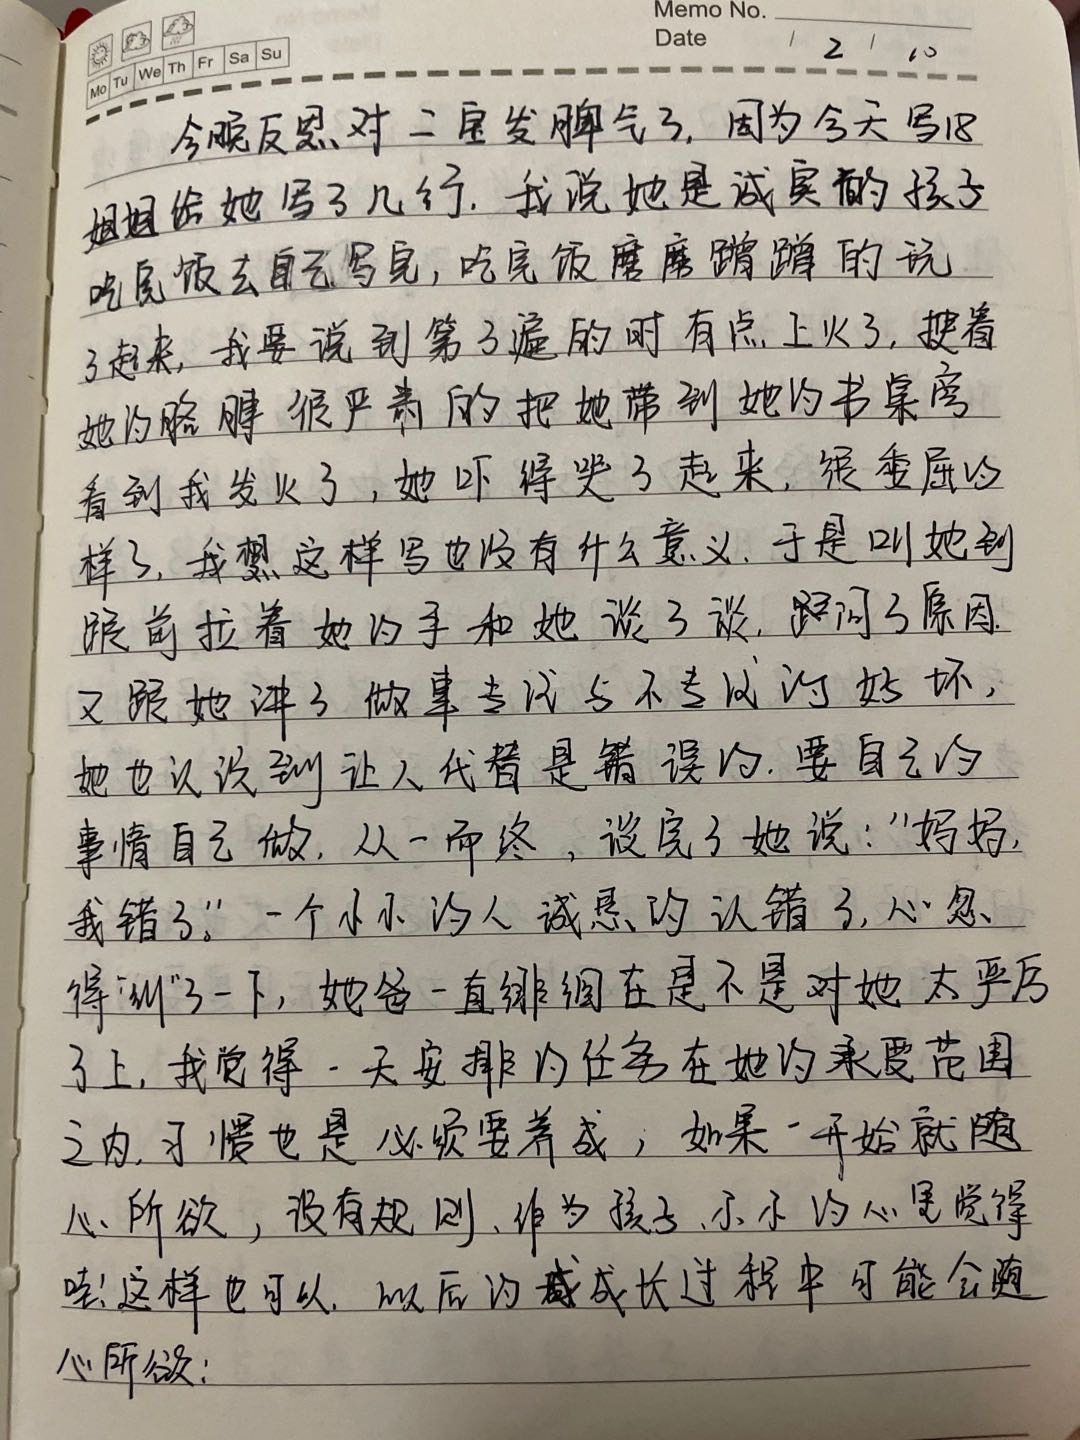 Memo No.
Date / 2 / 10
Mo Tu We Th Fr Sa Su
今晚反思对二宝发脾气了,因为今天写18
姐姐给她写了几行.我说她是诚实的孩子
吃完饭去自己写完,吃完饭磨磨蹭蹭的玩
了起来,我要说到第3遍的时有点上火了,拽着
她的胳膊很严肃的把她带到她的书桌旁
看到我发火了,她吓得哭了起来,很委屈的
样子,我想这样写也没有什么意义.于是叫她到
跟前拉着她的手和她谈了谈,跟问了原因.
又跟她讲了做事专注与不专注的好坏,
她也认识到让人代替是错误的.要自己的
事情自己做.从一而终,谈完了她说:"妈妈,
我错了。"一个小小的人诚恳的认错了,心忽
得"纠"了一下,她爸一直纠细在是不是对她太严厉
了上,我觉得一天安排的任务在她的承受范围
之内.习惯也是必须要养成,如果一开始就随
心所欲,没有规则、作为孩子、小小的心里觉得
哇!这样也可以.以后的成长过程中可能会随
心所欲;